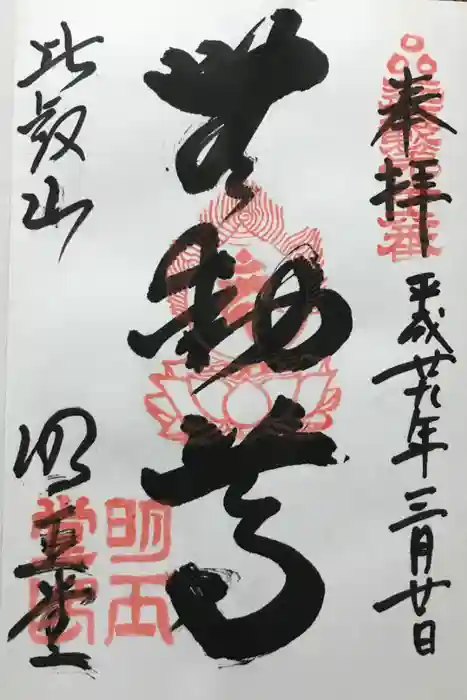 奉拝
平成廿九年三月廿日
無動尊
比叡山
明王堂
明王
堂印